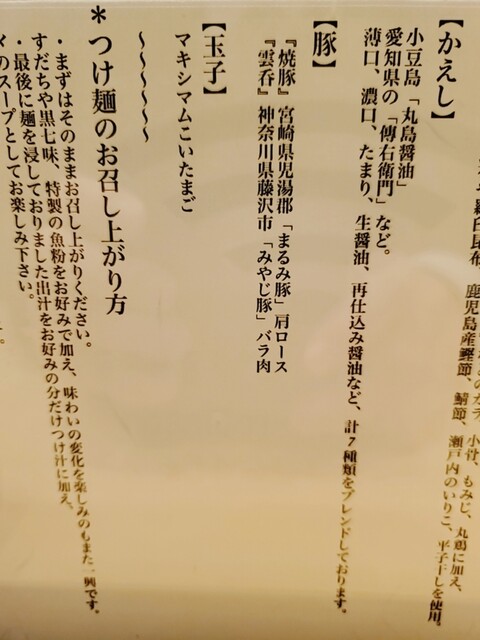 小骨、もみじ、丸鶏に加え、
羅臼昆布、鹿児島産鰹節、鯖節、瀬戸内のいりこ、平子干しを使用。
【かえし】
小豆島「丸島醤油」
愛知県の「傳右衛門」など。
薄口、濃口、たまり、生醤油、再仕込み醤油など、計7種類をブレンドしております。
【豚】
『焼豚』宮崎県児湯郡「まるみ豚」肩ロース
『雲呑』神奈川県藤沢市「みやじ豚」バラ肉
【玉子】
マキシマムこいたまご
〜〜〜〜〜〜
＊つけ麺のお召し上がり方
・まずはそのままお召し上がりください。
すだちや黒七味、特製の魚粉をお好みで加え、味わいの変化を楽しみのもまた一興です。
・最後に麺を浸しておりました出汁をお好みの分だけつけ汁に加え、
〆のスープとしてお楽しみ下さい。